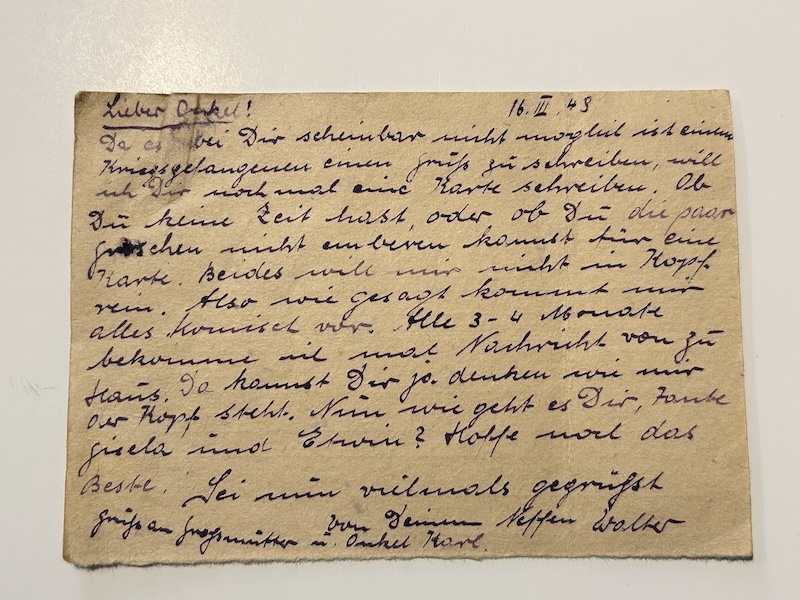 Lieber Onkel! 16. III. 49
Da es bei Dir scheinbar nicht möglich ist einem
Kriegsgefangenen einen Gruß zu schreiben, will
ich Dir noch mal eine Karte schreiben. Ob
Du keine Zeit hast, oder ob Du die paar
Groschen nicht emberen kannst für eine
Karte. Beides will mir nicht in Kopf
rein. Also wie gesagt kommt mir
alles Komisch vor. Alle 3-4 Monate
bekomme ich mal Nachricht von zu
Haus. Da kannst Dir ja denken wie mir
der Kopf steht. Nun wie geht es Dir, Tante
Gisela und Erwin? Hoffe noch das
Beste. Sei nun vielmals gegrüßt
von Deinem Neffen Walter
Grüß an Großmutter u. Onkel Karl.